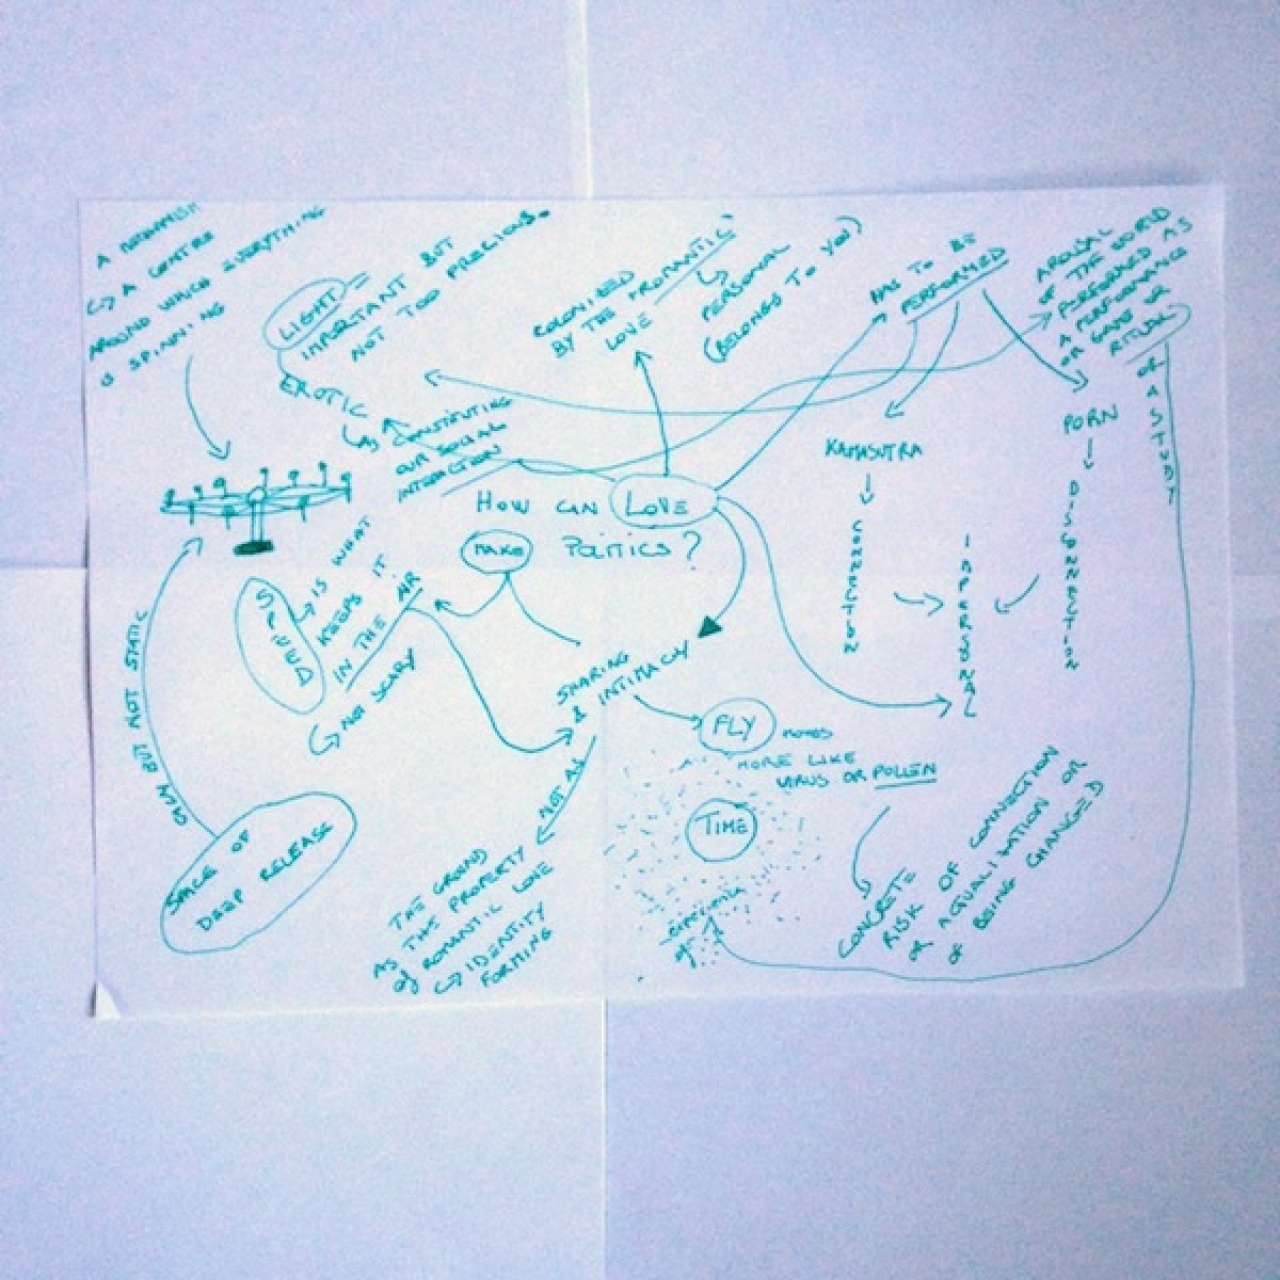 A MECHANISM
↳ A CENTRE
AROUND WHICH EVERYTHING
IS SPINNING
LIGHT =
IMPORTANT BUT
NOT TOO PRECIOUS.
EROTIC
↳ AS CONSTITUTING
OUR SOCIAL
INTERACTION
COLONIZED
BY THE "ROMANTIC"
LOVE
↳ PERSONAL
(BELONGS TO YOU)
HAS TO BE
PERFORMED
AROUSAL
OF THE WORLD
PERFORMED AS
A PERFORMANCE
OR GAME OR
RITUAL
OR A STUDY
KAMASUTRA
CONNECTION
PORN
DISCONNECTION
IMPERSONAL
HOW CAN LOVE
MAKE POLITICS?
SPEED
→ IS WHAT
KEEPS IT
IN THE AIR
↳ NOT SCARY
SHARING
& INTIMACY
FLY
MORE LIKE
VIRUS OR POLLEN
TIME
CONCRETE
RISK OF CONNECTION
OF ACTUALIZATION OR
OF BEING CHANGED
NOT AS
THE GROUND
AS THE PROPERTY
OF ROMANTIC LOVE
↳ IDENTITY
FORMING
CALM BUT NOT STATIC
SPACE OF
DEEP RELEASE